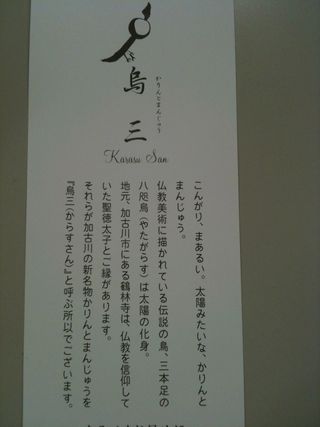 かりんとまんじゅう
烏三
Karasu San
こんがり、まあるい。太陽みたいな、かりんと
まんじゅう。
仏教美術に描かれている伝説の鳥、三本足の
八咫烏(やたがらす)は太陽の化身。
地元、加古川市にある鶴林寺は、仏教を信仰して
いた聖徳太子とご縁があります。
それらが加古川の新名物かりんとまんじゅうを
『烏三(からすさん)』と呼ぶ所以でございます。